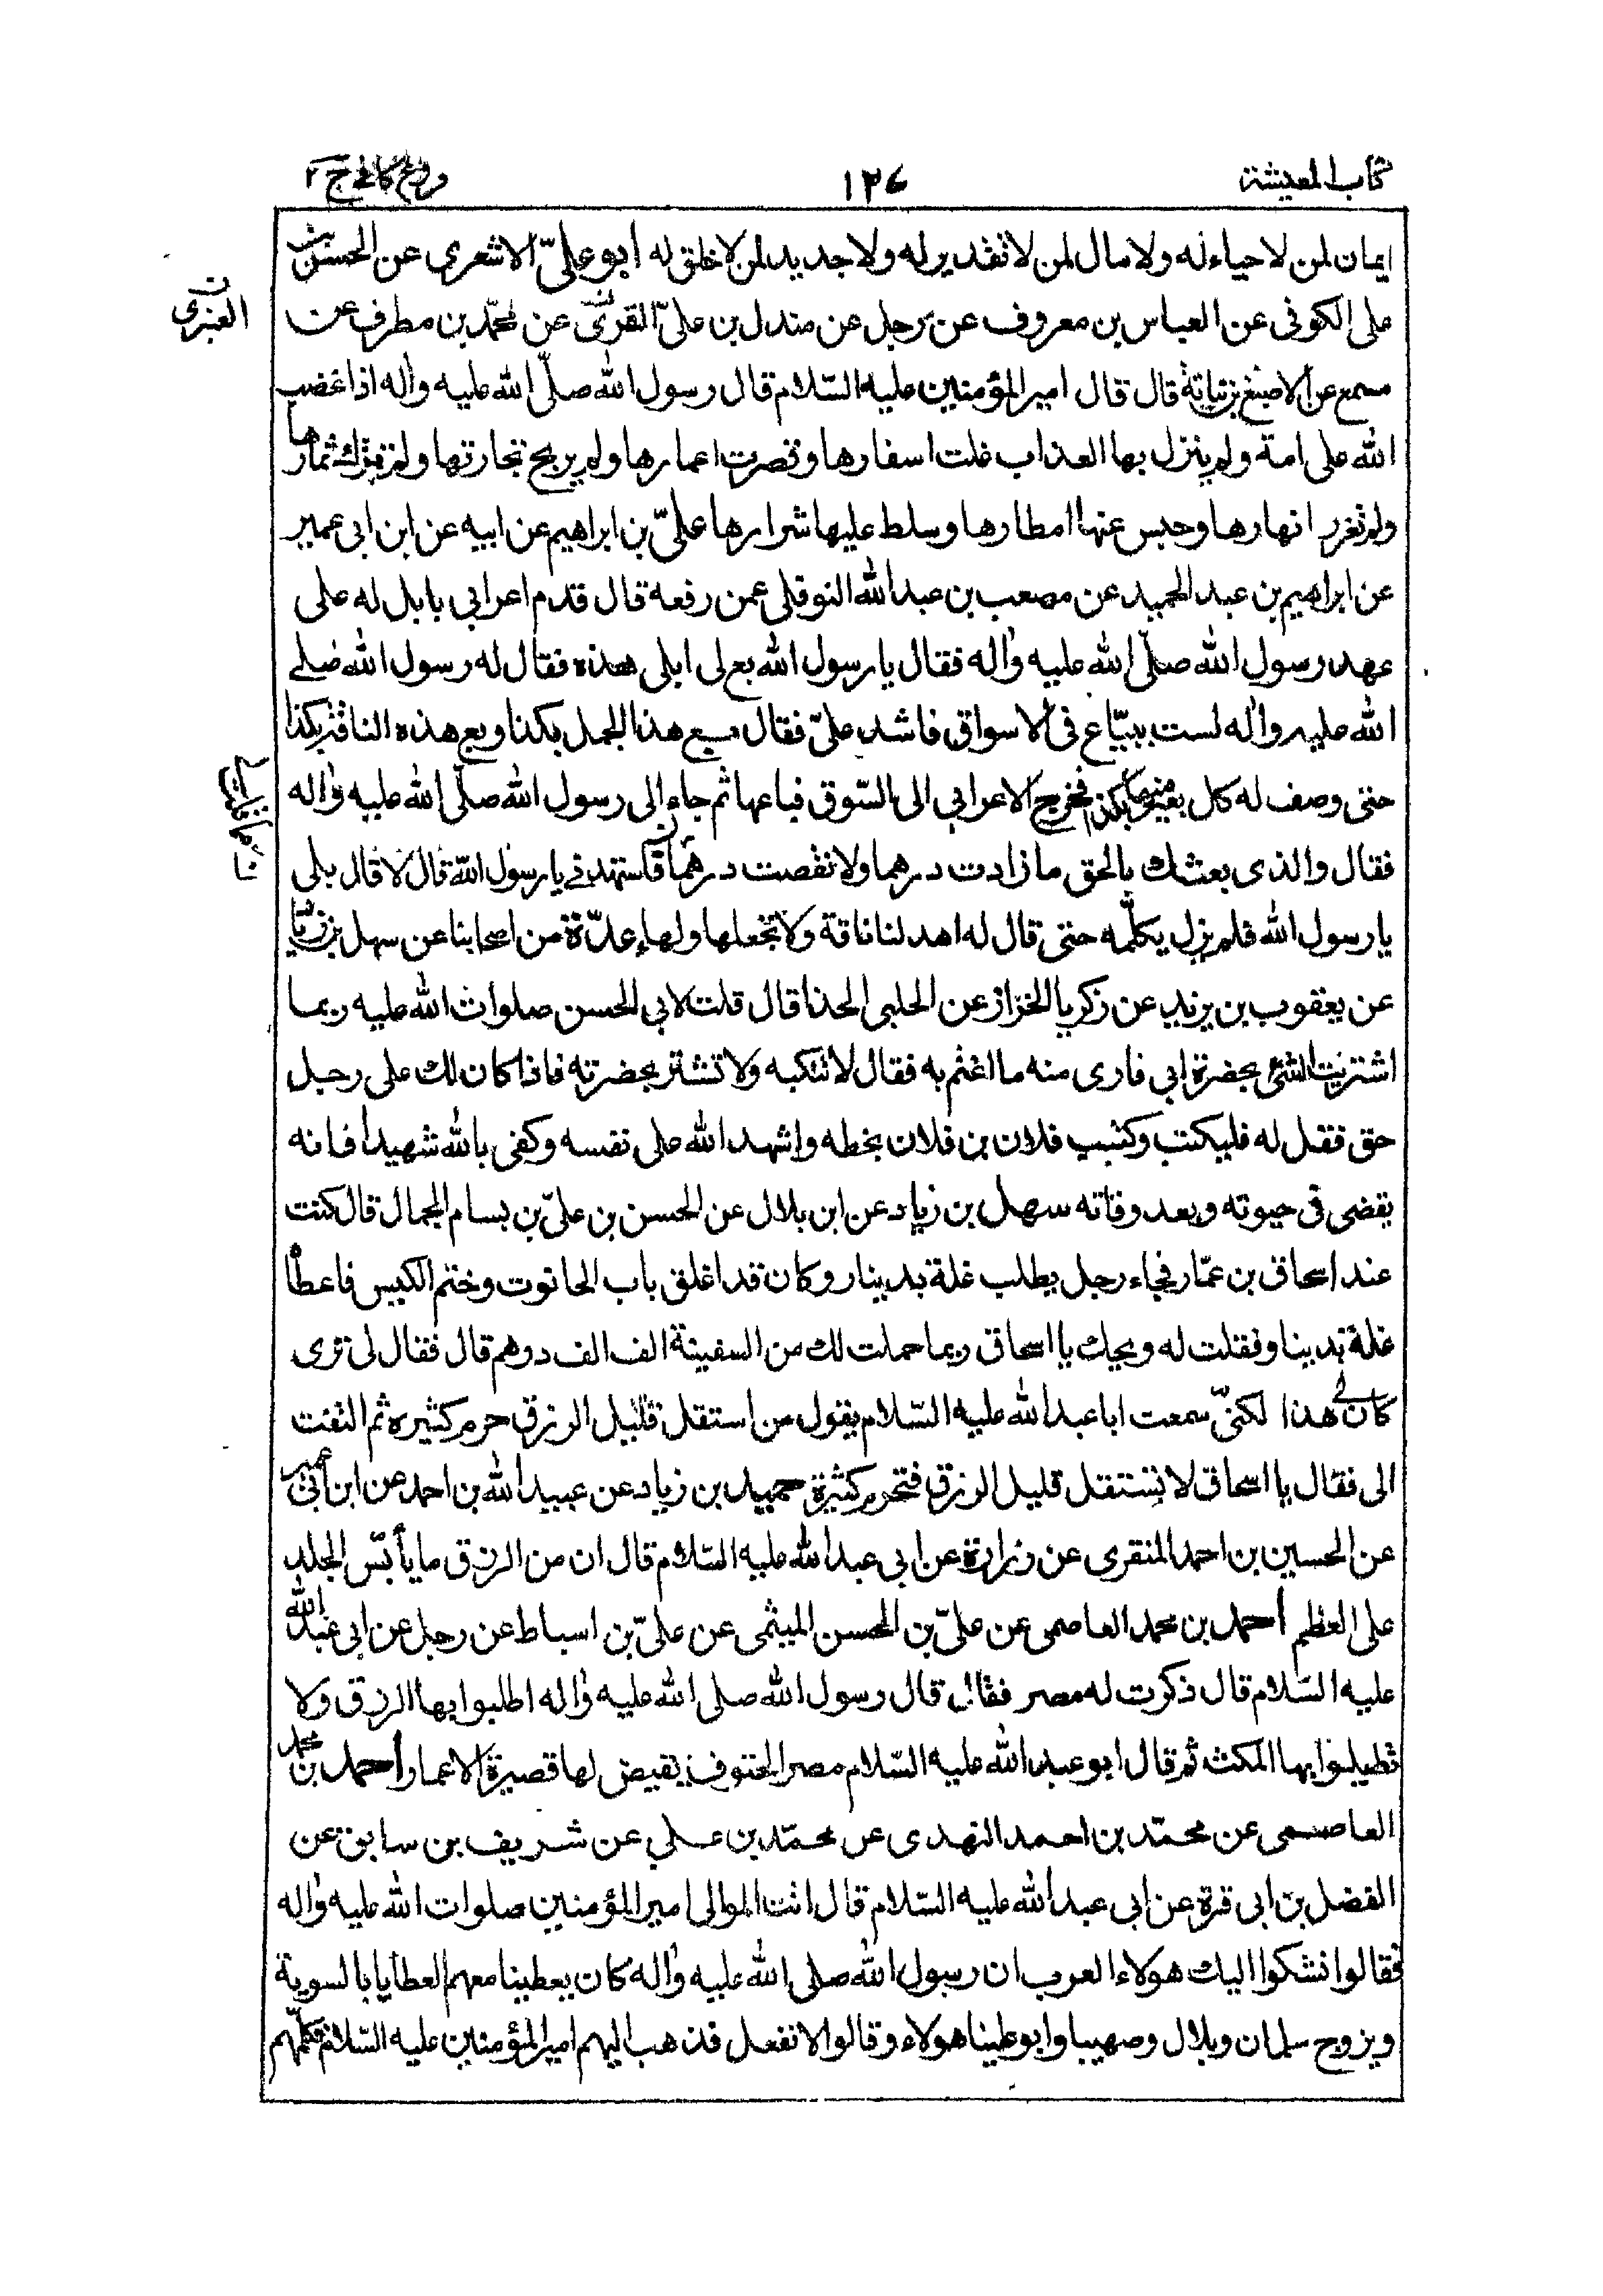 كتاب المعيشة
١٣٤
فروع كافى ج ٢
ايمان لمن لا حياء له ولا مال لمن لا تقدير له ولا جديد لمن لا خلق له ابو علىّ الاشعرى عن الحسن بن
على الكوفى عن العباس بن معروف عن رجل عن مندل بن علىّ عن محمّد بن مطرف عن
العنزى
مسمع عن الاصبغ بن نباتة قال قال امير المؤمنين عليه السّلام قال رسول الله صلّى الله عليه واله اذا غضب
الله على امة ولم ينزل بها العذاب غلت اسفارها وقصرت اعمارها ولم يربح تجارتها ولم تزك ثمارها
ولم تغزر انهارها وحبس عنها امطارها وسلط عليها شرارها علىّ بن ابراهيم عن ابيه عن ابن ابى عمير
عن ابراهيم بن عبد الحميد عن مصعب بن عبد الله النوفلى عمن رفعه قال قدم اعرابي بابل له على
عهد رسول الله صلّى الله عليه واله فقال يا رسول الله بع لى ابلى هذه فقال له رسول الله صلى
الله عليه واله لست ببيّاع فى الاسواق فاشد علىّ فقال بع هذا الجمل بكذا وبع هذه الناقة بكذا
حتى وصف له كل بعير منها بكذا فخرج الاعرابي الى السّوق فباعها ثم جاء الى رسول الله صلّى الله عليه واله
فقال والذى بعثك بالحق ما زادت درهما ولا نقصت درهما فاستهدنى يا رسول الله قال لا قال بلى
يا رسول الله فلم يزل يكلّمه حتى قال له اهد لنا ناقة ولا تجعلها ولهاء عدّة من اصحابنا عن سهل بن زياد
عن يعقوب بن يزيد عن زكريا الخزاز عن الحلبى الحذا قال قلت لابي الحسن صلوات الله عليه ربما
اشتريت الشئ بحضرة ابي فارى منه ما اغتم به فقال لا تنكبه ولا تشتر بحضرته فاذا كان لك على رجل
حق فقل له فليكتب وكتب فلان بن فلان بخطه واشهد الله على نفسه وكفى بالله شهيدا فانه
يقضى فى حيوته وبعد وفاته سهل بن زياد عن ابن بلال عن الحسن بن علىّ بن بسام الجمال قال كنت
عند اسحاق بن عمّار فجاء رجل يطلب غلة بدينار وكان قد اغلق باب الحانوت وختم الكيس فاعطاه
غلة بدينار فقلت له ويحك يا اسحاق ربما حملت لك من السفينة الف الف درهم قال فقال لى ترى
كان لى هذا لكنّى سمعت ابا عبد الله عليه السّلام يقول من استقل قليل الرزق حرم كثيره ثم التفت
الى فقال يا اسحاق لا تستقل قليل الرزق فتحرم كثيرة حميد بن زياد عن عبيد الله بن احمد عن ابن ابى عمير
عن الحسين بن احمد المنقرى عن زرارة عن ابى عبد الله عليه السّلام قال ان من الرزق ما يأبّس الجلد
على العظم احمد بن محمد العاصمى عن علىّ بن الحسن الميثمى عن علىّ بن اسباط عن رجل عن ابى عبد الله
عليه السّلام قال ذكرت له مصر فقال قال رسول الله صلى الله عليه واله اطلبوا بها الرزق ولا
تطيلوا بها المكث ثم قال ابو عبد الله عليه السّلام مصر الحتوف يقيض لها قصيرة الاعمار احمد بن محمد
العاصمى عن محمّد بن احمد النهدى عن محمّد بن على عن شريف بن سابق عن
الفضل بن ابى قرة عن ابى عبد الله عليه السّلام قال اتت الموالى امير المؤمنين صلوات الله عليه واله
فقالوا نشكوا اليك هولاء العرب ان رسول الله صلى الله عليه واله كان يعطينا معهم العطايا بالسوية
ويزوج سلمان وبلال وصهيبا وابو علينا هولاء وقالوا لا نفعل فذهب اليهم امير المؤمنين عليه السّلام فكلّمهم